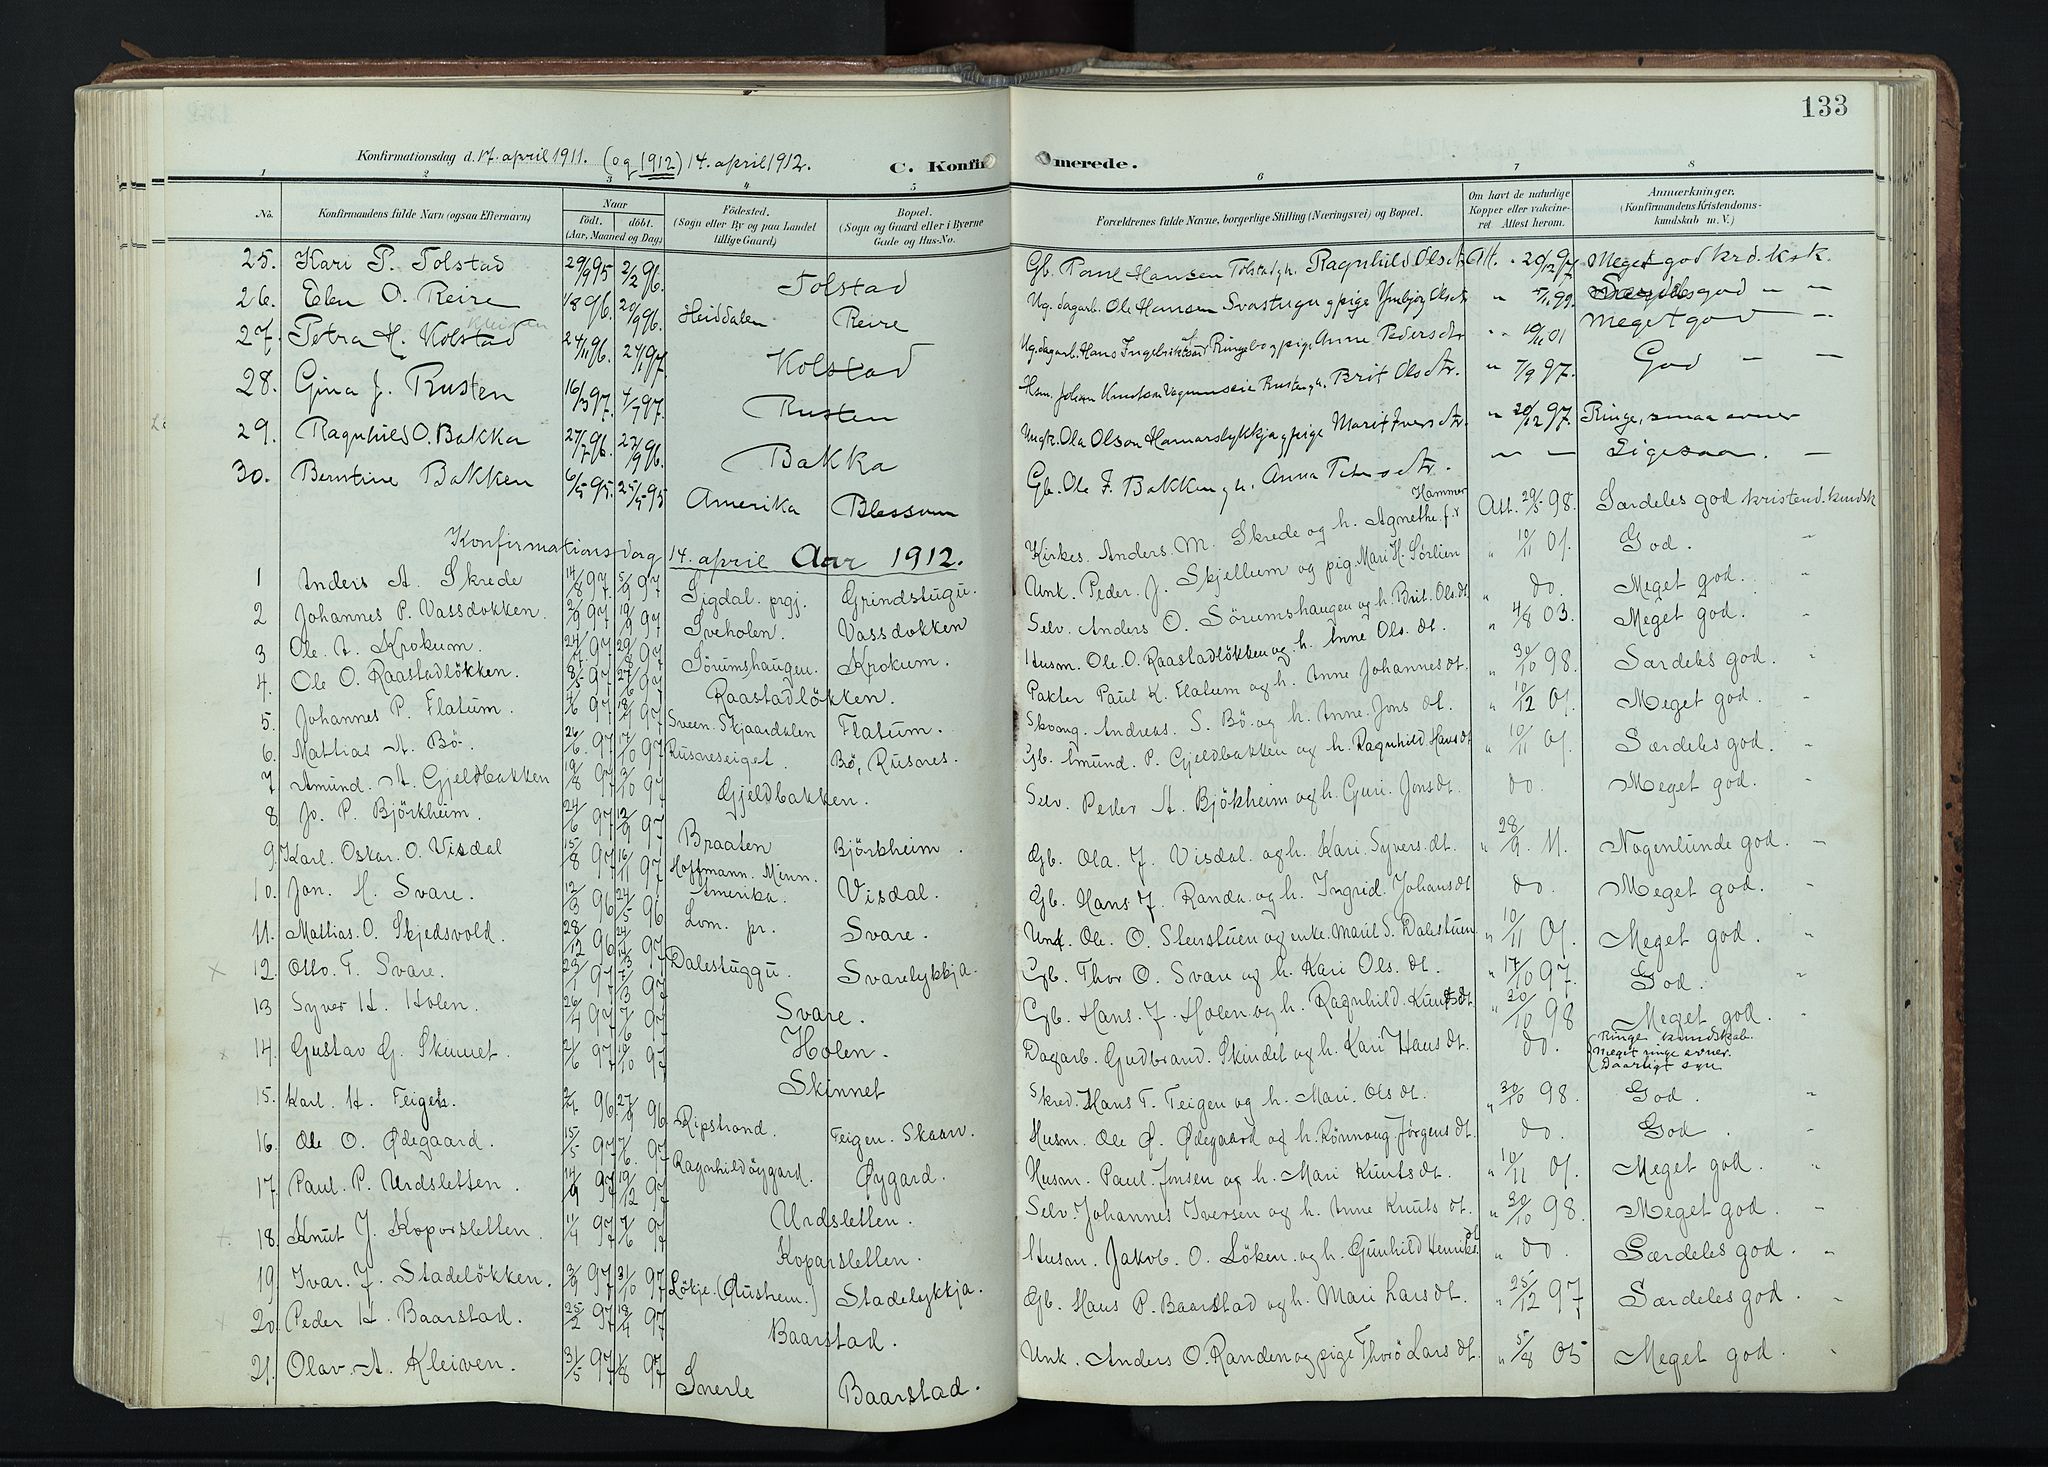 133
Konfirmationsdag d. 17. april 1911. (og 1912) 14. april 1912. C. Konfirmerede.
1 2 3 4 5 6 7 8
No. Konfirmandens fulde Navn (ogsaa Efternavn) Naar født. døbt. (Aar, Maaned og Dag) Fødested. (Sogn eller By og paa Landet tillige Gaard) Bopæl. (Sogn og Gaard eller i Byerne Gade og Hus-No. Forældrenes fulde Navne, borgerlige Stilling (Næringsvei) og Bopæl. Om havt de naturlige Kopper eller vakcineret. Attest herom. Anmærkninger. (Konfirmandens Kristendomskundskab m. V.)
25. Kari P. Tolstad 29/9 95 2/2 96. Tolstad Gb. Paul Hansen Tolstad h. Ragnhild Olsdtr Att. 20/12 97 Meget god krd. ksk.
26. Eben O. Reire 1/8 96. 20/9 96. Heiddalen Reire Ug. dagarb. Ole Hansen Svastugu g pige Ymbjør Olsdtr " 5/11 99. Særdeles god " "
27. Petra H. Kolstad Kleiven 24/11 96. 24/1 97. Kolstad Ug. dagarb. Hans Ingebrikts. Ringebo g pige Anne Pedersdtr " 10/11 01 Meget god "
28. Gina J. Rusten 16/3 97. 4/7 97. Rusten Hsm. Johan Knutsen Rusten g h. Brit Olsdtr. " 7/9 97. God " "
29. Ragnhild O. Bakka 27/7 96. 27/9 96. Bakka Ungk. Ola Olson Hamarslykkja g pige Marit Iversdtr. " 20/12 97. Ringe, smaa evner
30. Berntine Bakken 6/5 95. 25/5 95 Amerika Blessum Gb. Ole F. Bakken g h. Anna Petersdtr. " " Ligesaa. "
Konfirmations dag 14. april Aar 1912.
1 Anders A. Skrede 14/8 97. 5/9 97 Sigdal prgj. Grindstugu. Kirkes. Anders. M. Skrede og h. Agnethe f. Hammer Att. 29/5 98. Særdeles god kristend. kundsk
2 Johannes P. Vassdokken. 2/9 97 19/9 97 Sveholen. Vassdokken Unk. Peder. J. Skjellum og pig. Mari H. Sørlien " 10/11 01. God. "
3 Ole. A. Krokum. 24/7 97 29/8 97 Sörumshaugen. Krokum. Selv. Anders O. Sörumshaugen og h. Brit. Ols. dt " do. Meget god. "
4. Ole O. Raastadlökken. 8/5 97 27/6 97 Raastadlökken. Husm. Ole. O. Raastadlökken og h. Anne Ols. dt. " 4/8 03. Meget god.
5. Johannes P. Flatum. 4/6 97 18/7 97 Sveen. Skjaardalen Flatum. Pakter Paul K. Flatum og h. Anne Johannesdt. " 30/10 98. Særdeles god. "
6. Mathias A. Bö. 26/6. 97 17/10 97 Rusneseiget. Bö, Rusnes. Skoang. Andreas. S. Bö. og h. Anne. Jons dt. " 10/12 01. Meget god. "
7 Amund. A. Gjeldbakken 19/8 97 3/10 97 Gjeldbakken. Gb. Amund. P. Gjeldbakken og h. Ragnhild Hansdt " 10/11 01 Særdeles god. "
8. Jo. P. Björkheim. 24/6 97 12/9 97 Braaten Björkheim. Selv. Peder A. Bjökheim og h. Guri. Jonsdt. do. Meget god. "
9. Karl. Oskar. O. Visdal 15/8 97 16/11 97 Hoffmann. Minn. Amerika. Visdal. Gb. Ola. J. Visdal. og h. Kari. Syvers. dt. " 28/9. 11. Nogenlunde god. "
10. Jon. H. Svare. 12/3 96 24/5 96 Lom. pr. Svare. Gb. Hans J. Randa og h. Ingrid. Johansdt do. Meget god. "
11. Mathias. O. Skjedsvold. 28/12 96 24/1 97 Dalestuggu. Svarelykkja. Unk. Ole. O. Stenstuen og enke. Marit S. Dalestuen " 10/11 01. Meget god. "
12. Otto. T. Svare. 23/1 97 7/3 97 Svare. Gb. Thor O. Svare og h. Kari Ols. dt. " 17/10 97. God. "
13 Syver H. Holen. 26/4 97 7/6 97 Holen. Gb. Hans. J. Holen og h. Ragnhild. Knutsdt " 30/10 98 Meget god. "
14. Gustav G. Skinnet. 21/6 97 10/10 97 Skinnet Dagarb. Gudbrand. Skindet og h. Kari Hansdt. do. Ringe kundskab. Meget ringe evner. Daarligt syn
15. Karl. H. Teigen. 2/7. 96 27/9 96 Ripstrand. Teigen. Skaar. Skred. Hans T. Teigen og h. Mari. Ols dt. " 30/10 98. God. "
16. Ole O. Ødegaard. 15/5 97 7/6. 97 Ragnhildöygard. Øygard. Husm. Ole Ø. Ødegaard og h. Rönnaug. Jörgens dt. do. God. "
17. Paul. P. Urdsletten. 14/9 97 19/12 97 Urdsletten. Husm. Paul. Jonsen og h. Mari Knuts dt. " 10/11 01. Meget god. "
18. Knut J. Koporsletten. 11/4 97 7/6 97 Koporsletten. Selv. Johannes Iversen og h. Anne Knuts dt. " 30/10 98. Meget god. "
19 Ivar. J. Stadelökken. 3/9 97 31/10 97 Lökje. (Øusthem.) Stadelykkja. Husm. Jakob. O. Löken. og h. Gunhild Henriks. dt " do. Særdeles god. "
20. Peder H. Baarstad. 25/2 97 18/4 97 Baarstad. Gb. Hans P. Baarstad og h. Mari Larsdt. " 25/12 97 Særdeles god. "
21. Olav. A. Kleiven. 31/5 97 1/8 97 Snerle Baarstad. Unk. Anders O. Randen og pige Thorö Lars dt. " 5/8 05 Meget god. "